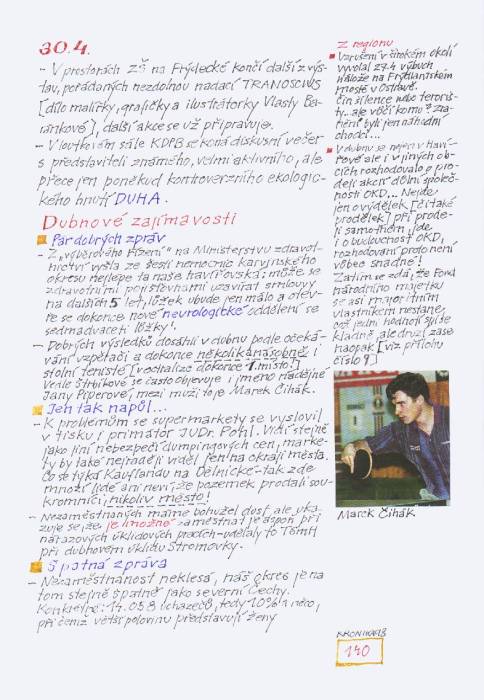 30.4.
- V prostorách ZŠ na Frýdecké končí další z výs-
tav, pořádaných nezdolnou nadací TRANOSCIUS
[dílo malířky, grafičky a ilustrátorky Vlasty Ba-
ránkové], další akce se už připravuje.
- V loutkovém sále KDPB se koná diskusní večer
s představiteli známého, velmi aktivního, ale
přece jen poněkud kontroverzního ekologic-
kého hnutí DUHA.
Dubnové zajímavosti
Pár dobrých zpráv
- Z „výběrového řízení“ na Ministerstvu zdravot-
nictví vyšla ze šesti nemocnic karvinského
okresu nejlépe ta naše havířovská: může se
zdravotními pojišťovnami uzavírat smlouvy
na dalších 5 let, lůžek ubude jen málo a otev-
ře se dokonce nové neurologické oddělení se
sedmadvaceti lůžky!
- Dobrých výsledků dosáhli v dubnu podle očeká-
vání vzpěrači a dokonce několikanásobně i
stolní tenisté [v octialize dokonce 1. místo!]
Vedle Štrbíkové se často objevuje i jméno nadějné
Jany Piperové, mezi muži to je Marek Čihák.
Jen tak napůl...
- K problémům se supermarkety se vyslovil
v tisku i primátor JUDr. Pohl. Vidí stejně
jako jiní nebezpečí dumpingových cen, marke-
ty by také nejraději viděl jen na okraji města.
Co se týká Kauflandu na Dělnické - tak zde
mnozí lidé ani neví, že pozemek prodali sou-
kromníci, nikoliv město!
- Nezaměstnaných máme bohužel dost, ale uka-
zuje se, že je možné zaměstnat je aspoň při
nárazových úklidových pracích - udělaly to TSMH
při dubnovém úklidu Stromovky.
Špatná zpráva
- Nezaměstnanost neklesá, náš okres je na
tom stejně špatně jako severní Čechy.
Konkrétně: 14.058 uchazečů, tedy 10% a něco,
při čemž větší polovinu představují ženy
Z regionu
Vzrušení v širokém okolí
vyvolal 27.4 výbuch
nálože na Frýdlantském
mostě v Ostravě.
Čin šílence nebo teroris-
ty... ale vůči komu? Zra-
nění byli jen náhodní
chodci...
V dubnu se nejen v Haví-
řově ale i v jiných ob-
cích rozhodovalo o pro-
deji akcií důlní společ-
nosti OKD... Nejde
jen o výdělek [či také
prodělek] při prode-
ji samotném, jde
i o budoucnost OKD,
rozhodování proto není
vůbec snadné!
Zatím se zdá, že Fond
národního majetku
se asi majoritním
vlastníkem nestane,
což jedni hodnotí spíše
kladně, ale druzí zase
naopak [viz příloha
číslo 9]
Marek Čihák
KRONIKÁŘ
140